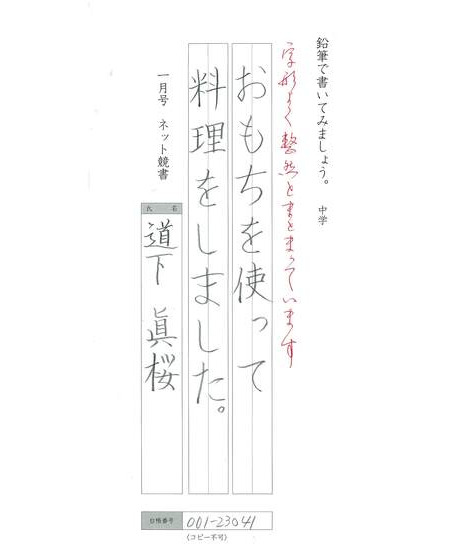 鉛筆で書いてみましょう。 中学
字形よく整然とまとまっています
おもちを使って
料理をしました。
一月号 ネット競書
氏名
道下 眞桜
台帳番号 001-23041
(コピー不可)